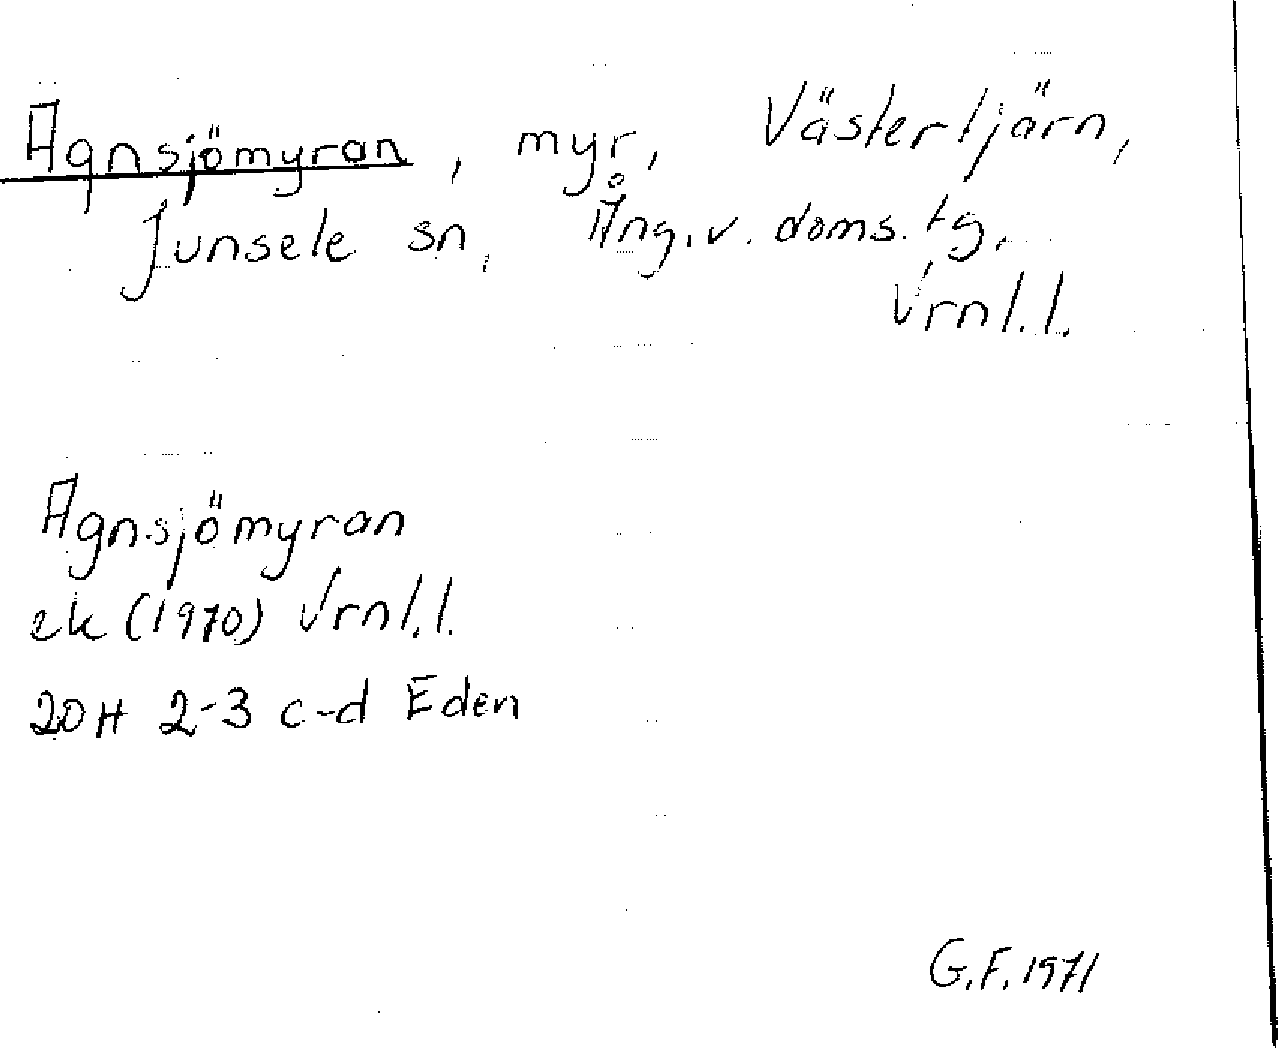 Agnsjömyran, myr, Västertjärn,
Junsele sn, Ång.v. doms. tg,
Vrnl.l.
Agnsjömyran
ek (1970) Vrnl.l.
20H 2-3 c-d Eden
G.F. 1971